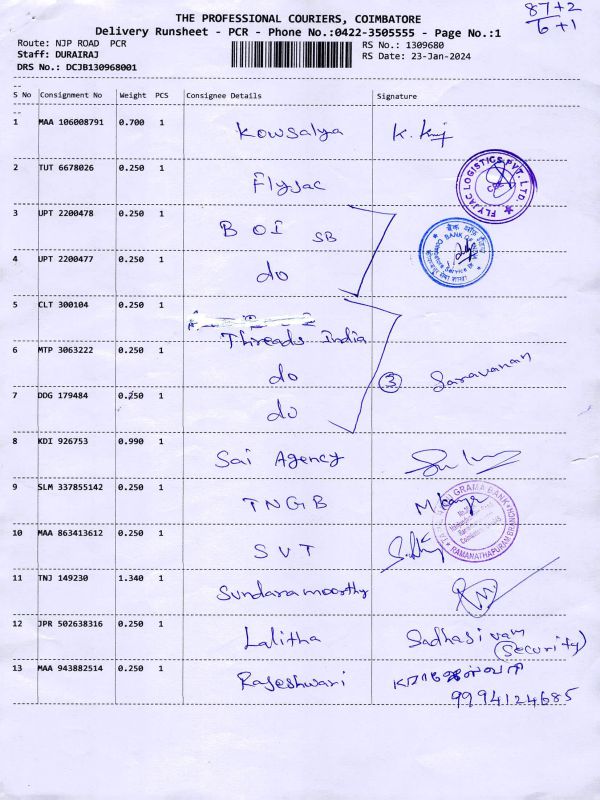 87+2
6 +1
THE PROFESSIONAL COURIERS, COIMBATORE
Delivery Runsheet - PCR - Phone No.:0422-3505555 - Page No.:1
Route: NJP ROAD PCR
RS No.: 1309680
Staff: DURAIRAJ
RS Date: 23-Jan-2024
DRS No.: DCJB130968001
S No Consignment No Weight PCS Consignee Details Signature
1 MAA 106008791 0.700 1 Kowsalya
2 TUT 6678026 0.250 1 Flyjac
FLYJAC LOGISTICS PVT. LTD.
3 UPT 2200478 0.250 1 BOI SB
4 UPT 2200477 0.250 1 do
5 CLT 300104 0.250 1 Threads India
6 MTP 3063222 0.250 1 do 3 Saravanan
7 DDG 179484 0.250 1 do
8 KDI 926753 0.990 1 Sai Agency
9 SLM 337855142 0.250 1 TNGB
GRAMA BANK
RAMANATHAPURAM BRANCH
10 MAA 863413612 0.250 1 SVT
11 TNJ 149230 1.340 1 Sundaramoorthy
12 JPR 502638316 0.250 1 Lalitha Sadhasivam
(Security)
13 MAA 943882514 0.250 1 Rajeshwari
9994124685